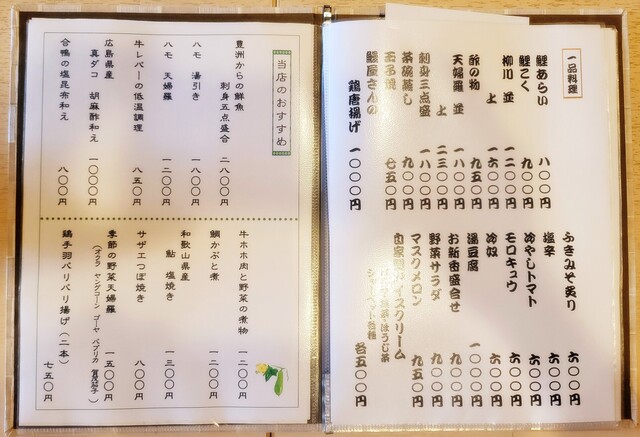 一品料理
鯉あらい 八〇〇円
鯉こく 九〇〇円
柳川 並 一二〇〇円
上 一六〇〇円
酢の物 九五〇円
天婦羅 並 一八〇〇円
上 二三〇〇円
刺身三点盛 一八〇〇円
茶碗蒸し 九〇〇円
玉子焼 七五〇円
鰻屋さんの
鶏唐揚げ 一〇〇〇円
ふきみそ炙り 六〇〇円
塩辛 六〇〇円
冷やしトマト 六〇〇円
モロキュウ 六〇〇円
冷奴 六〇〇円
湯豆腐 一〇〇〇円
お新香盛合せ 九〇〇円
野菜サラダ 九〇〇円
マスクメロン 九五〇円
自家製アイスクリーム
ほうじ茶
シャーベット各種 各五〇〇円
当店のおすすめ
豊洲からの鮮魚
刺身五点盛合 二八〇〇円
ハモ 湯引き 一八〇〇円
ハモ 天婦羅 一二〇〇円
牛レバーの低温調理 八五〇円
広島県産
真ダコ 胡麻酢和え 一〇〇〇円
合鴨の塩昆布和え 八〇〇円
牛ホホ肉と野菜の煮物 一二〇〇円
鯛かぶと煮 一二〇〇円
和歌山県産
鮎 塩焼き 一三〇〇円
サザエつぼ焼き 八〇〇円
季節の野菜天婦羅 一五〇〇円
（オクラ ヤングコーン ゴーヤ パプリカ 賀茂茄子）
鶏手羽パリパリ揚げ（二本） 七五〇円